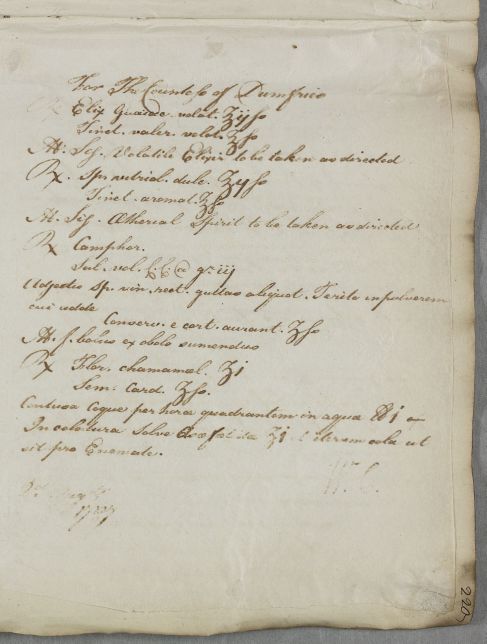 For The Countess of Dumfries
Rx Elix Guaiac. volat. ℥ijſs
Tinct. valer. volat. ℥ſs
M. Sig. Volatile Elixir to be taken as directed
Rx. Sp. nutrial. dulc. ℥ijſs
Tinct. aromat. ℥ſs
M. Sig. Æthereal Spirit to be taken as directed
Rx Camphor.
Sal. vol. C. C. a gr iij
Adjectis sp. vin. rect. guttas aliquot. Terito in pulverem
cui adde
Conserv. e cort. aurant. ℥ſs
M. f. bolus ex obolo sumendus
Rx Flor. chamæmel. ℥i
Sem. Card. ℥ſs.
Contusa Coque per hora quadrantem in aqua ℔i
In colatura Solve ℥i iterum cola ut
sit pro Enemate.
220